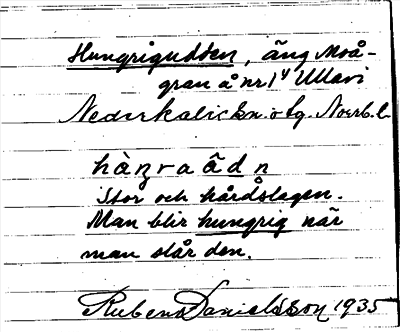 Hungriguddsen, äng Moå-
gran å nr 1⁴ Ullavi
Nederkalix sn. o tg. Norrb. l.
Stor och hårdslagen.
Man blir hungrig när
man slår den.
Ruben Danielsson 1935